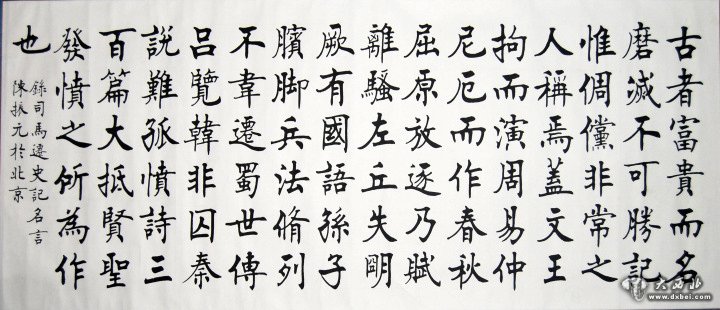 古者富貴而名
磨滅不可勝記
惟倜儻非常之
人稱焉蓋文王
拘而演周易仲
尼厄而作春秋
屈原放逐乃賦
離騷左丘失明
厥有國語孫子
臏脚兵法脩列
不韋遷蜀世傳
呂覽韓非囚秦
說難孤憤詩三
百篇大抵賢聖
發憤之所為作
也
錄司馬遷史記名言
陳振元於北京
大西北
www.dxbei.com